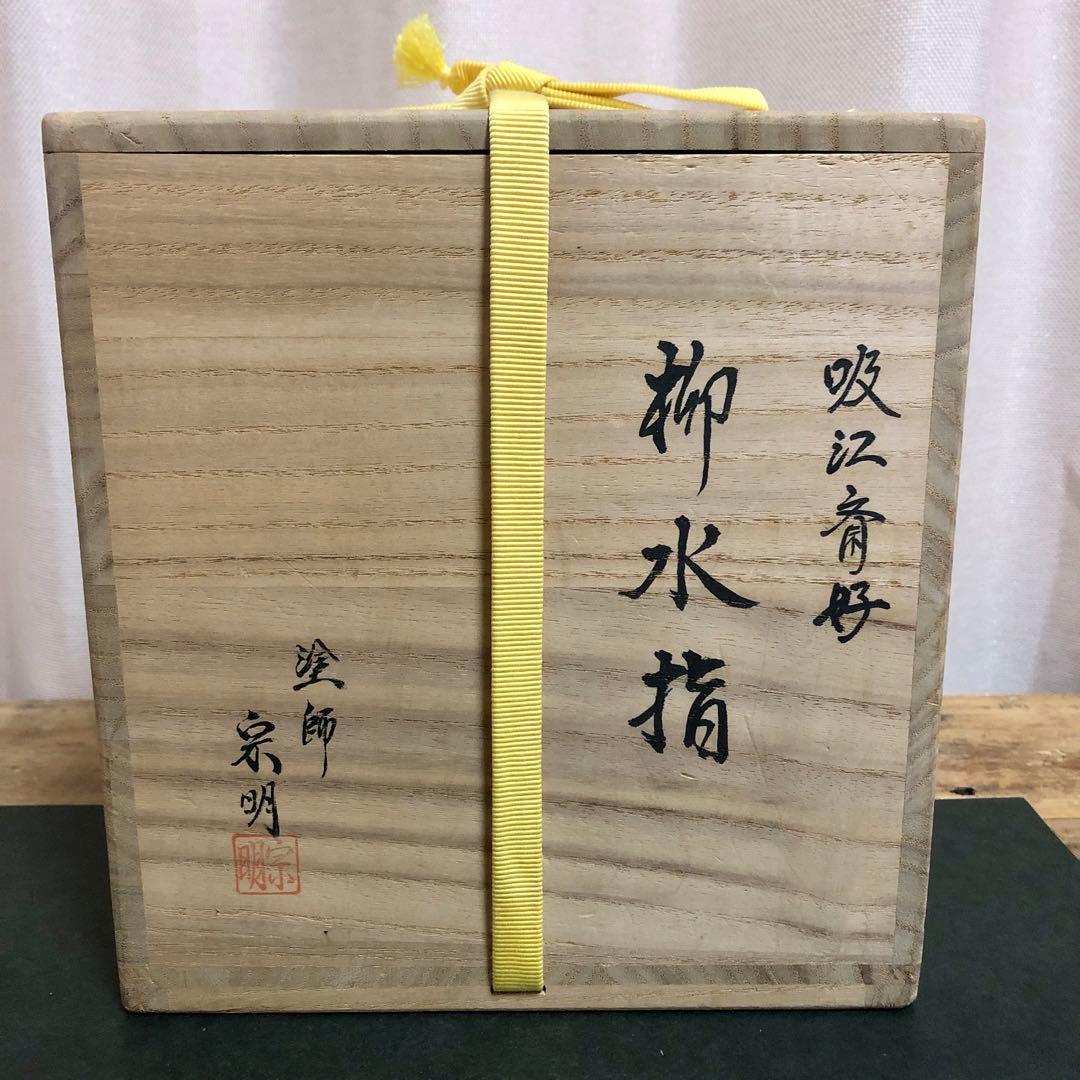 吸江斎好
柳水指
塗師
宗明
宗明